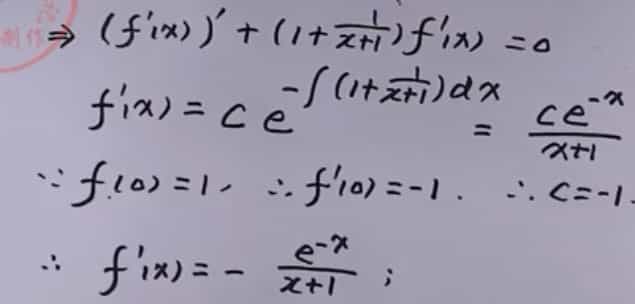 制作
⇒ (f'(x))' + (1+1/(x+1))f'(x) = 0
f'(x) = ce^(-∫(1+1/(x+1))dx) = ce^(-x)/(x+1)
∵ f(0)=1, ∴ f'(0)=-1. ∴ c=-1.
∴ f'(x) = - e^(-x)/(x+1) ;